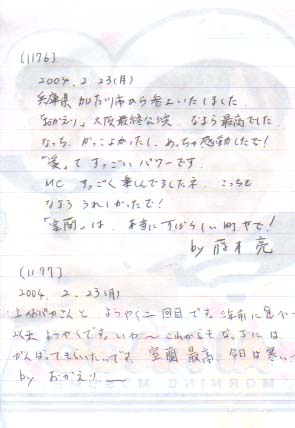 [1176]
2004. 2. 23(月)
兵庫県加古川市から参上いたしました.
「おかえり」大阪最終公演 なまら最高でした
なっち. かっこよかったし、めっちゃ感動したで!
「愛」て すっごい パワーです.
MC すっごく 楽しんでましたネ. こっちも
なまら うれしかったで!
「室蘭」は、本当に すばらしい 町やで!
by 藤木 亮
[1177]
2004. 2. 23(月)
さんと ようやく二回目です。 年前に食べ
以来 ようやくです。いや〜 これからも なっちには
がんばってもらいたいです。 室蘭 最高. 今日は 寒い
by おかえり〜
MORNING